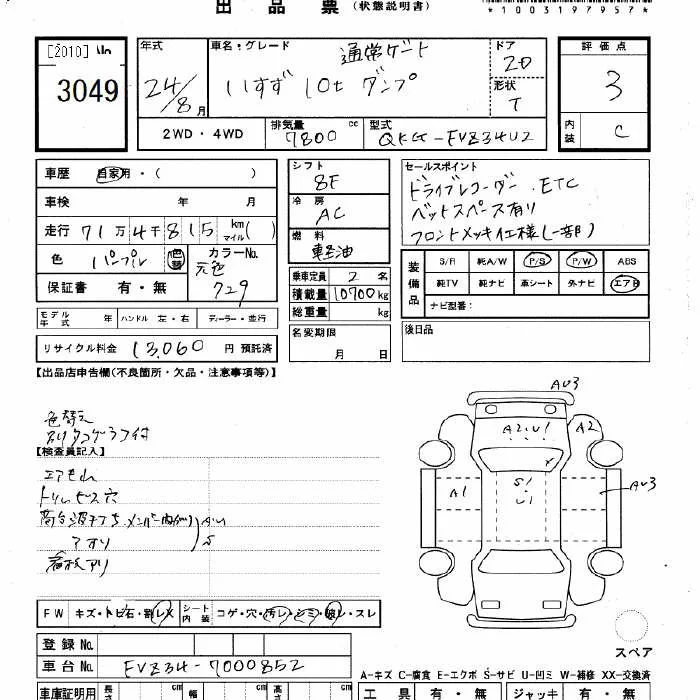 出品票 (状態説明書)
*1003197957*
[2010]
3049
年式 24/8月
車名・グレード 通常ゲート
いすず 10t ダンプ
ドア 2D
形状 T
評価点 3
内装 C
2WD・4WD
排気量 7800 cc
型式 QKG-EVZ34U2
車歴 自家用・( )
車検 年 月
走行 71万4千815 km マイル( )
色 パープル 色替
カラーNo. 元色 729
保証書 有・無
シフト 8F
冷房 AC
燃料 軽油
乗車定員 2名
積載量 10700kg
総重量 kg
セールスポイント
ドライブレコーダー、ETC
ベットスペース有り
フロントメッキ仕様(一部)
装備品
S/R 純A/W P/S P/W ABS
純TV 純ナビ 革シート 外ナビ エアB
ナビ型番:
モデル年式 年 ハンドル 左・右 ディーラー・並行
リサイクル料金 13,060 円 預託済
名変期限 月 日
後日品
【出品店申告欄(不良箇所・欠品・注意事項等)】
色替え
【検査員記入】
エアもれ
トリムビス穴
アオリ
看板アリ
AU3
A2,U1
A2
A1
S1
U1
AU3
FW キズ・トビ石・割レX
シート内装 コゲ・穴・汚レ・シミ・破レ・スレ
登録No.
車台No. EVZ34-7000852
スペア
A-キズ C-腐食 E-エクボ S-サビ U-凹ミ W-補修 XX-交換済
車庫証明用 長さ cm 幅 cm 高さ cm
工具 有・無 ジャッキ 有・無